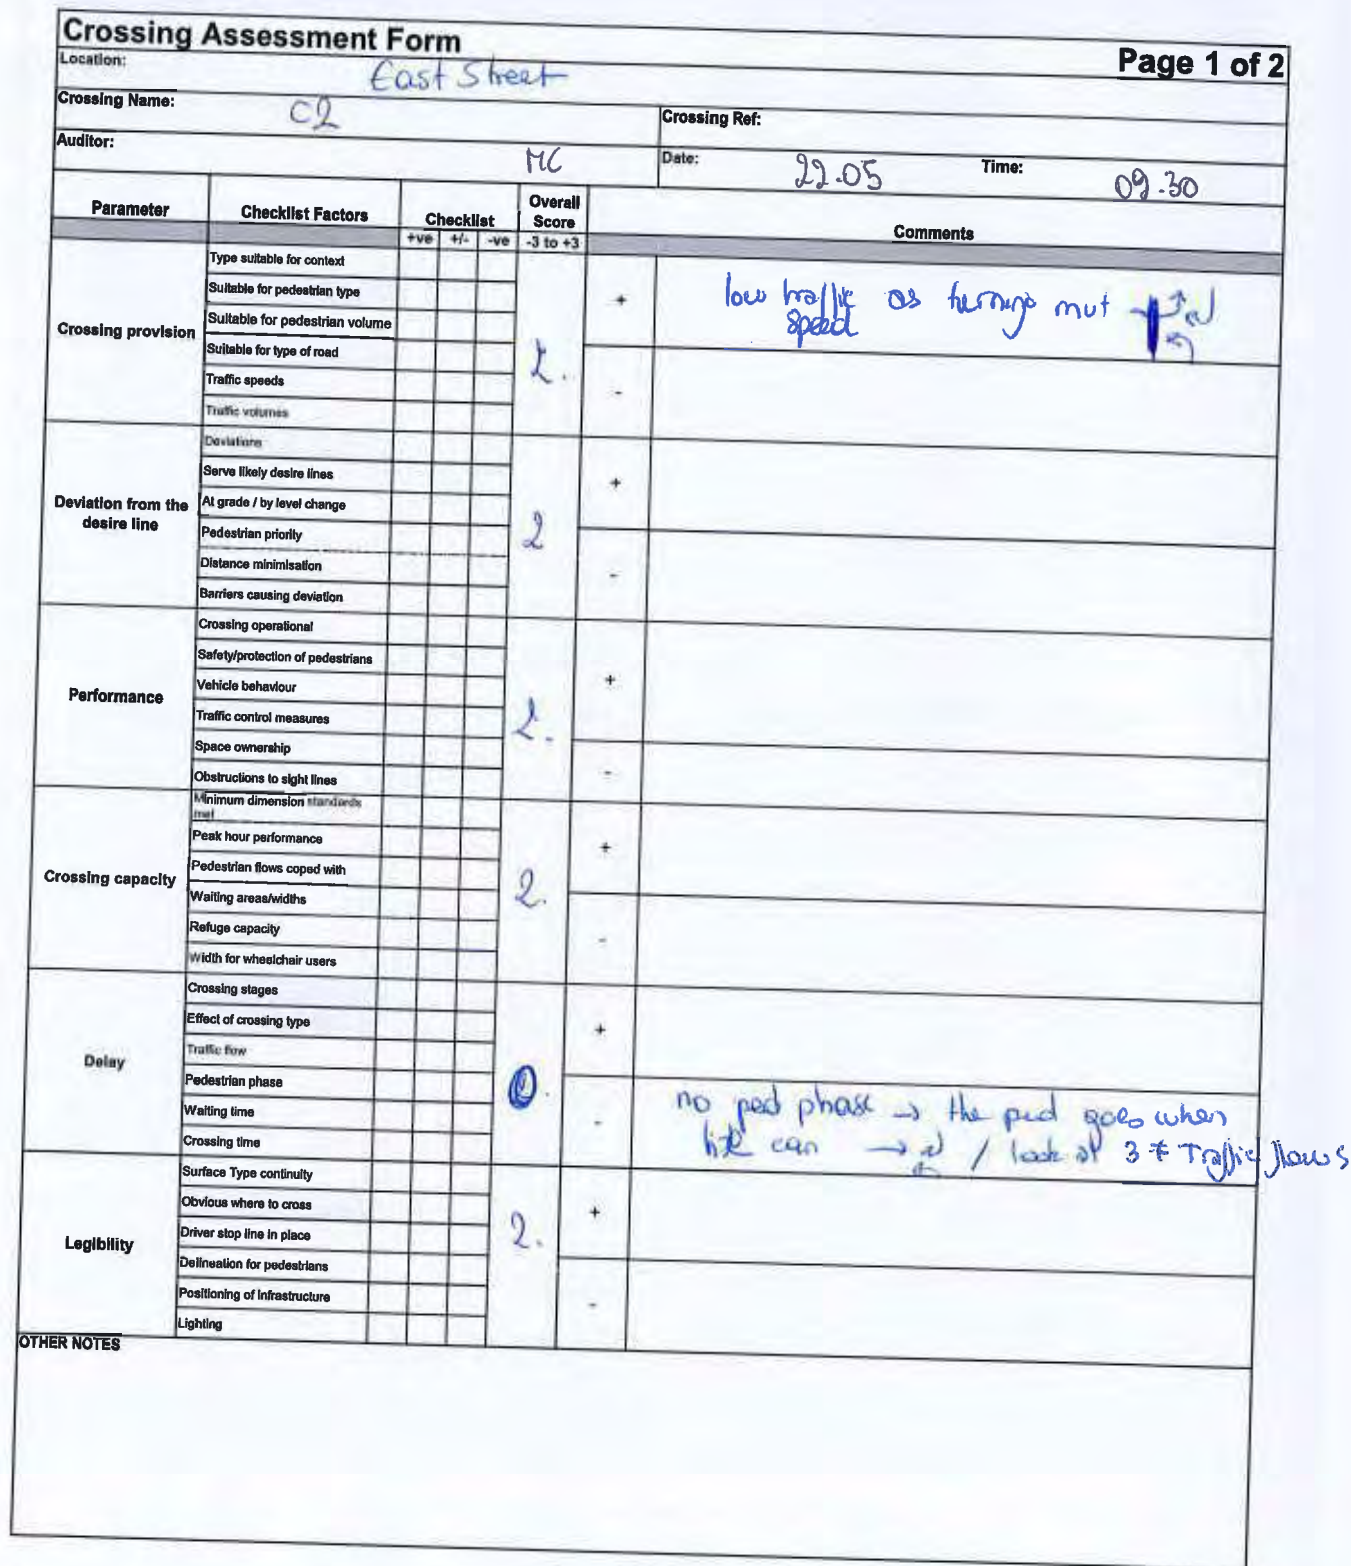 Crossing Assessment Form
Page 1 of 2
Location: East Street
Crossing Name: C2
Crossing Ref:
Auditor: MC
Date: 22.05 Time: 09.30
Parameter Checklist Factors Checklist Overall Score Comments
+ve +/- -ve -3 to +3
Crossing provision
Type suitable for context
Suitable for pedestrian type
Suitable for pedestrian volume
Suitable for type of road
Traffic speeds
Traffic volumes
+ low traffic as
speed
-
Deviation from the
desire line
Deviations
Serve likely desire lines
At grade / by level change
Pedestrian priority
Distance minimisation
Barriers causing deviation
2
+
-
Performance
Crossing operational
Safety/protection of pedestrians
Vehicle behaviour
Traffic control measures
Space ownership
Obstructions to sight lines
+
-
Crossing capacity
Minimum dimension standards
met
Peak hour performance
Pedestrian flows coped with
Waiting areas/widths
Refuge capacity
Width for wheelchair users
2.
+
-
Delay
Crossing stages
Effect of crossing type
Traffic flow
Pedestrian phase
Waiting time
Crossing time
0.
+
- no ped phase → the ped goes when
can → / look at 3 ≠ Traffic flows
Legibility
Surface Type continuity
Obvious where to cross
Driver stop line in place
Delineation for pedestrians
Positioning of infrastructure
Lighting
2.
+
-
OTHER NOTES